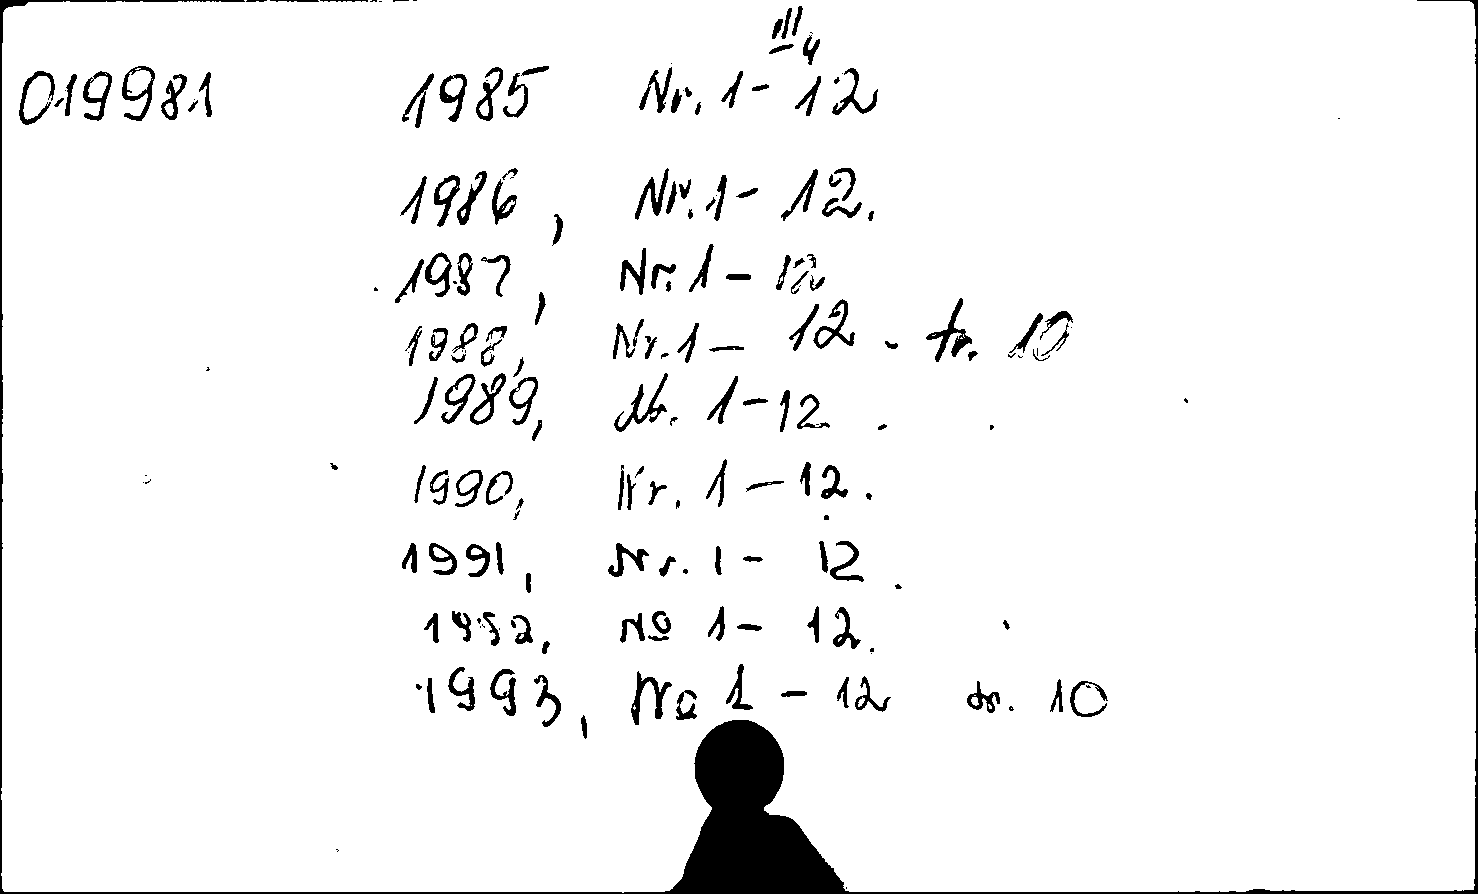 019981 1985 Nr. 1- 12
1986, Nr. 1- 12.
1987, Nr. 1- 12
1988, Nr. 1- 12. tr. 10
1989, Nr. 1-12.
1990, Nr. 1-12.
1991, Nr. 1- 12.
1992, № 1- 12.
1993, № 1-12 tr. 10